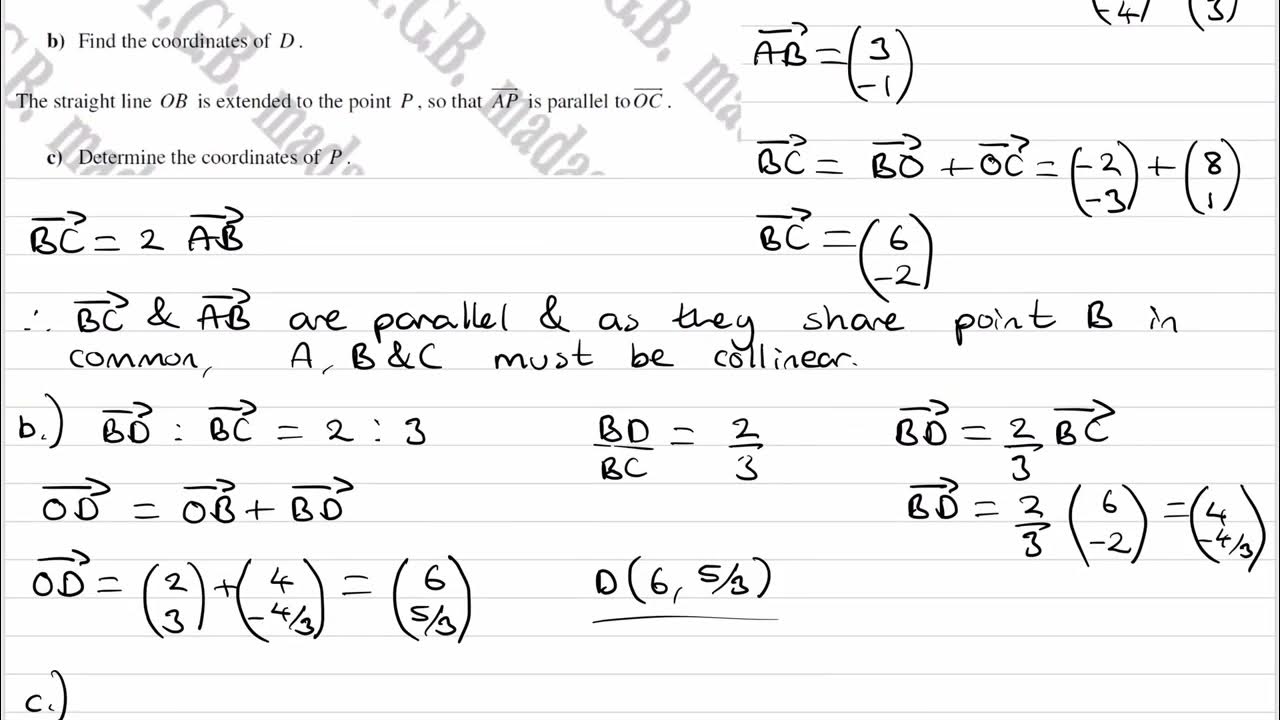 b) Find the coordinates of D.
The straight line OB is extended to the point P, so that AP is parallel to OC.
c) Determine the coordinates of P.
(-4) (3)
AB = (3 -1)
BC = BO + OC = (-2 -3) + (8 1)
BC = (6 -2)
BC = 2 AB
∴ BC & AB are parallel & as they share point B in
common, A, B & C must be collinear.
b.) BD : BC = 2 : 3
BD/BC = 2/3
BD = 2/3 BC
OD = OB + BD
BD = 2/3 (6 -2) = (4 -4/3)
OD = (2 3) + (4 -4/3) = (6 5/3)
D(6, 5/3)
c.)